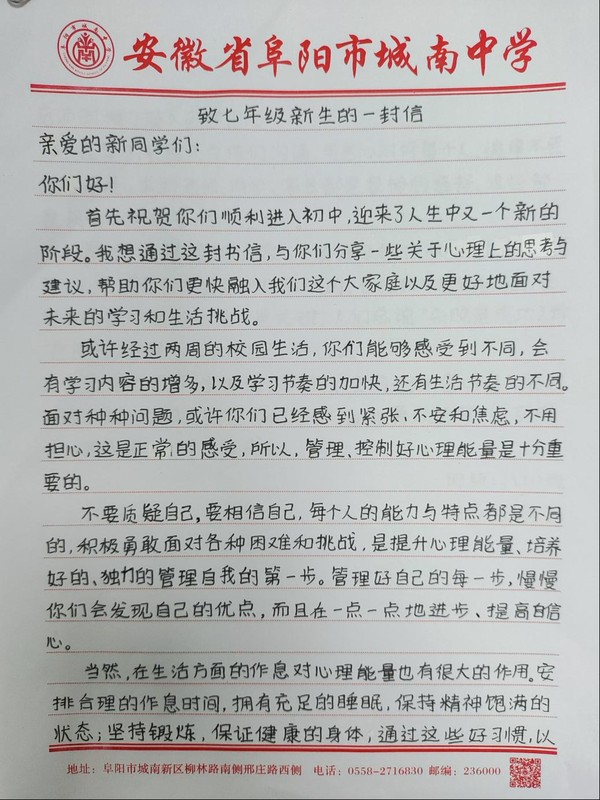 安徽省阜阳市城南中学
致七年级新生的一封信
亲爱的新同学们:
你们好!
首先祝贺你们顺利进入初中,迎来了人生中又一个新的
阶段。我想通过这封书信,与你们分享一些关于心理上的思考与
建议,帮助你们更快融入我们这个大家庭以及更好地面对
未来的学习和生活挑战。
或许经过两周的校园生活,你们能够感受到不同,会
有学习内容的增多,以及学习节奏的加快,还有生活节奏的不同。
面对种种问题,或许你们已经感到紧张、不安和焦虑,不用
担心,这是正常的感受,所以,管理、控制好心理能量是十分重
要的。
不要质疑自己,要相信自己,每个人的能力与特点都是不同
的,积极勇敢面对各种困难和挑战,是提升心理能量、培养
好的、独力的管理自我的第一步。管理好自己的每一步,慢慢
你们会发现自己的优点,而且在一点一点地进步、提高自信
心。
当然,在生活方面的作息对心理能量也有很大的作用。安
排合理的作息时间,拥有充足的睡眠,保持精神饱满的
状态;坚持锻炼,保证健康的身体,通过这些好习惯,以
地址:阜阳市城南新区柳林路南侧邢庄路西侧 电话:0558-2716830 邮编:236000